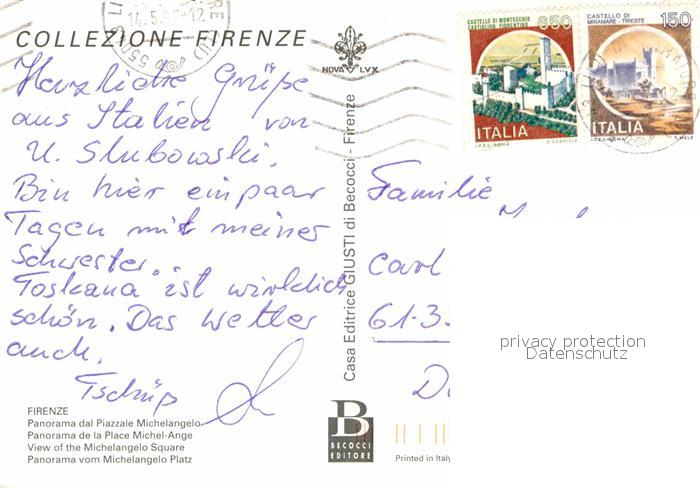 COLLEZIONE FIRENZE
NOVA LVX
14.5.92-12
CASTELLO DI MONTECCHIO
CASTIGLION FIORENTINO
650
ITALIA
I.P.Z.S. - ROMA
CASTELLO DI
MIRAMARE - TRIESTE
150
ITALIA
I.P.Z.S. - ROMA
Herzliche Grüße
aus Italien von
U. Slubowski.
Bin hier ein paar
Tagen mit meiner
Schwester.
Toskana ist wirklich
schön. Das Wetter
auch.
Tschüp
Casa Editrice GIUSTI di Becocci - Firenze
Familie
Carl
61-3
privacy protection
Datenschutz
FIRENZE
Panorama dal Piazzale Michelangelo
Panorama de la Place Michel-Ange
View of the Michelangelo Square
Panorama vom Michelangelo Platz
B
BECOCCI
EDITORE
Printed in Italy